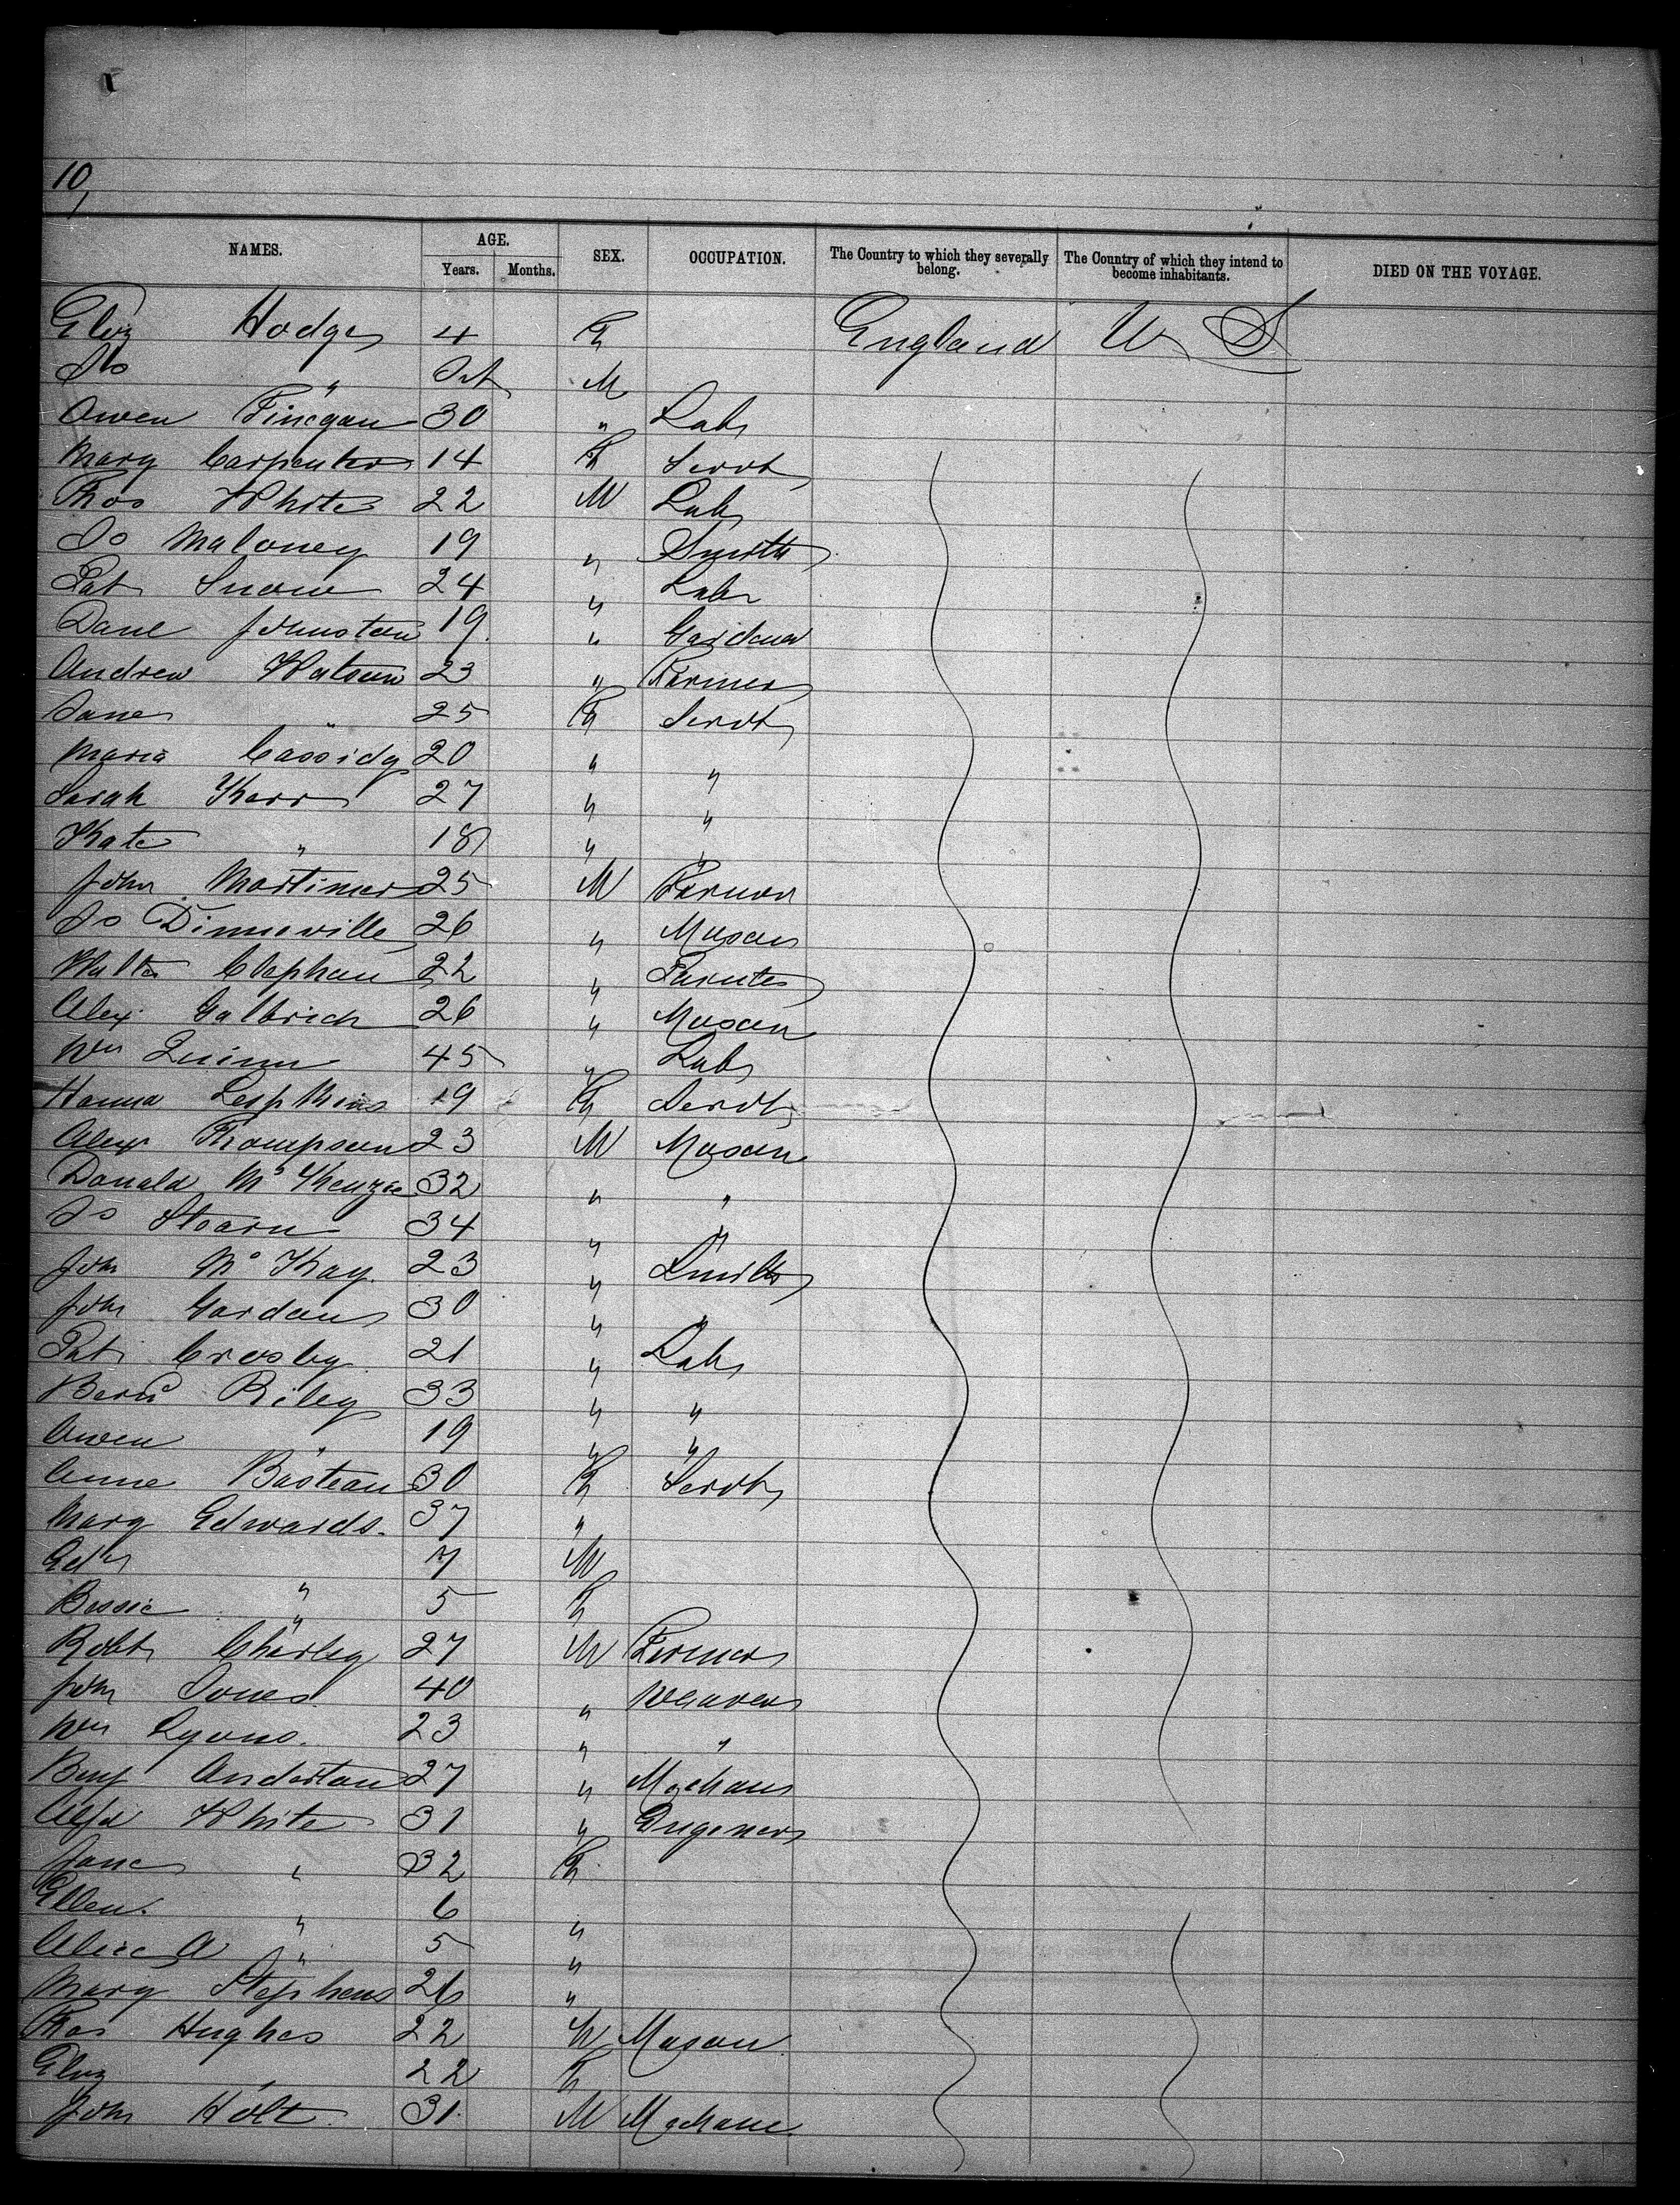 10
NAMES. AGE. SEX. OCCUPATION. The Country to which they severally belong. The Country of which they intend to become inhabitants. DIED ON THE VOYAGE.
Years. Months.
Eliz Hodges 4 F England U S
Js " Inf M
Owen Finegan 30 " Labr
Mary Carpenter 14 F Servt
Thos White 22 M Labr
Js Maloney 19 " Smith
Pat Snow 24 " Labr
Danl Johnston 19 " Gardener
Andrew Watson 23 " Farmer
Jane " 25 F Servt
Maria Cassidy 20 " "
Sarah Kerr 27 " "
Kate " 18 " "
John Mortimer 25 M Farmer
Js Dinneville 26 " Mason
Walter Clephan 22 " Painter
Alex Galbrich 26 " Mason
Wm Quinn 45 " Labr
Hanna 19 F Servt
Alex Thompson 23 M Mason
Donald McKenzie 32 " "
Js Stearn 34 " "
John McKay 23 " Smith
John Gordon 30 " "
Pat Crosby 21 " Labr
Bernd Riley 33 " "
Owen " 19 " "
Anne Basteau 30 F Servt
Mary Edwards 37 "
Edw " 7 M
Bessie " 5 F
Robt Charley 27 M Farmer
John Jones 40 " Weaver
Wm Lyons 23 " "
Benj Anderton 27 " Mechanc
Alfd White 31 " Engener
Jane " 32 F
Ellen " 6 "
Alice A " 5 "
Mary Stephens 26 "
Thos Hughes 22 M Mason
Eliz " 22 F
John Holt 31 M Mechanc